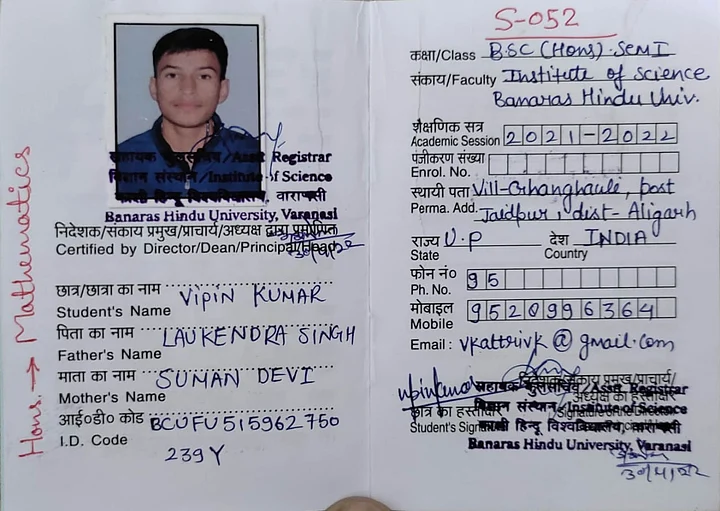 सहायक कुलसचिव/Asstt Registrar
विज्ञान संस्थान/Institute of Science
काशी हिन्दू विश्वविद्यालय, वाराणसी
Banaras Hindu University, Varanasi
निदेशक/संकाय प्रमुख/प्राचार्य/अध्यक्ष द्वारा प्रमाणित
Certified by Director/Dean/Principal/Head
छात्र/छात्रा का नाम VIPIN KUMAR
Student's Name
पिता का नाम LAUKENDRA SINGH
Father's Name
माता का नाम SUMAN DEVI
Mother's Name
आई०डी० कोड BCUFU515962760
I.D. Code 239Y
Hons. → Mathematics
S-052
कक्षा/Class B.SC (Hons). Sem I
संकाय/Faculty Institute of Science
Banaras Hindu Univ.
शैक्षणिक सत्र 2021-2022
Academic Session
पंजीकरण संख्या
Enrol. No.
स्थायी पता Vill- post
Perma. Add. Jaidpur, dist- Aligarh
राज्य U.P देश INDIA
State Country
फोन नं० 95
Ph. No.
मोबाइल 9520996364
Mobile
Email : vkattrivk@gmail.com
निदेशक/संकाय प्रमुख/प्राचार्य/
सहायक कुलसचिव/Asstt Registrar
अध्यक्ष का हस्ताक्षर
विज्ञान संस्थान/Institute of Science
छात्र का हस्ताक्षर
Student's Signature
काशी हिन्दू विश्वविद्यालय, वाराणसी
Banaras Hindu University, Varanasi